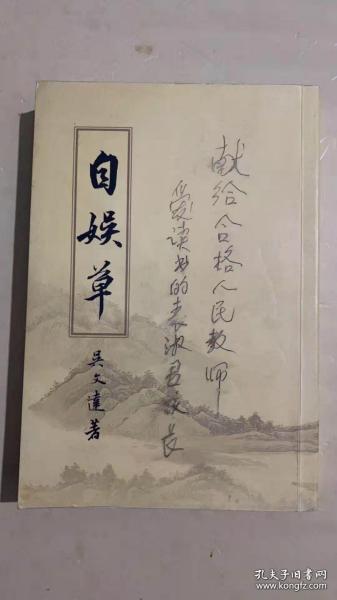 自娱草
吴文達著
献给合格人民教师
爱读书的李淑君家长
孔夫子旧书网